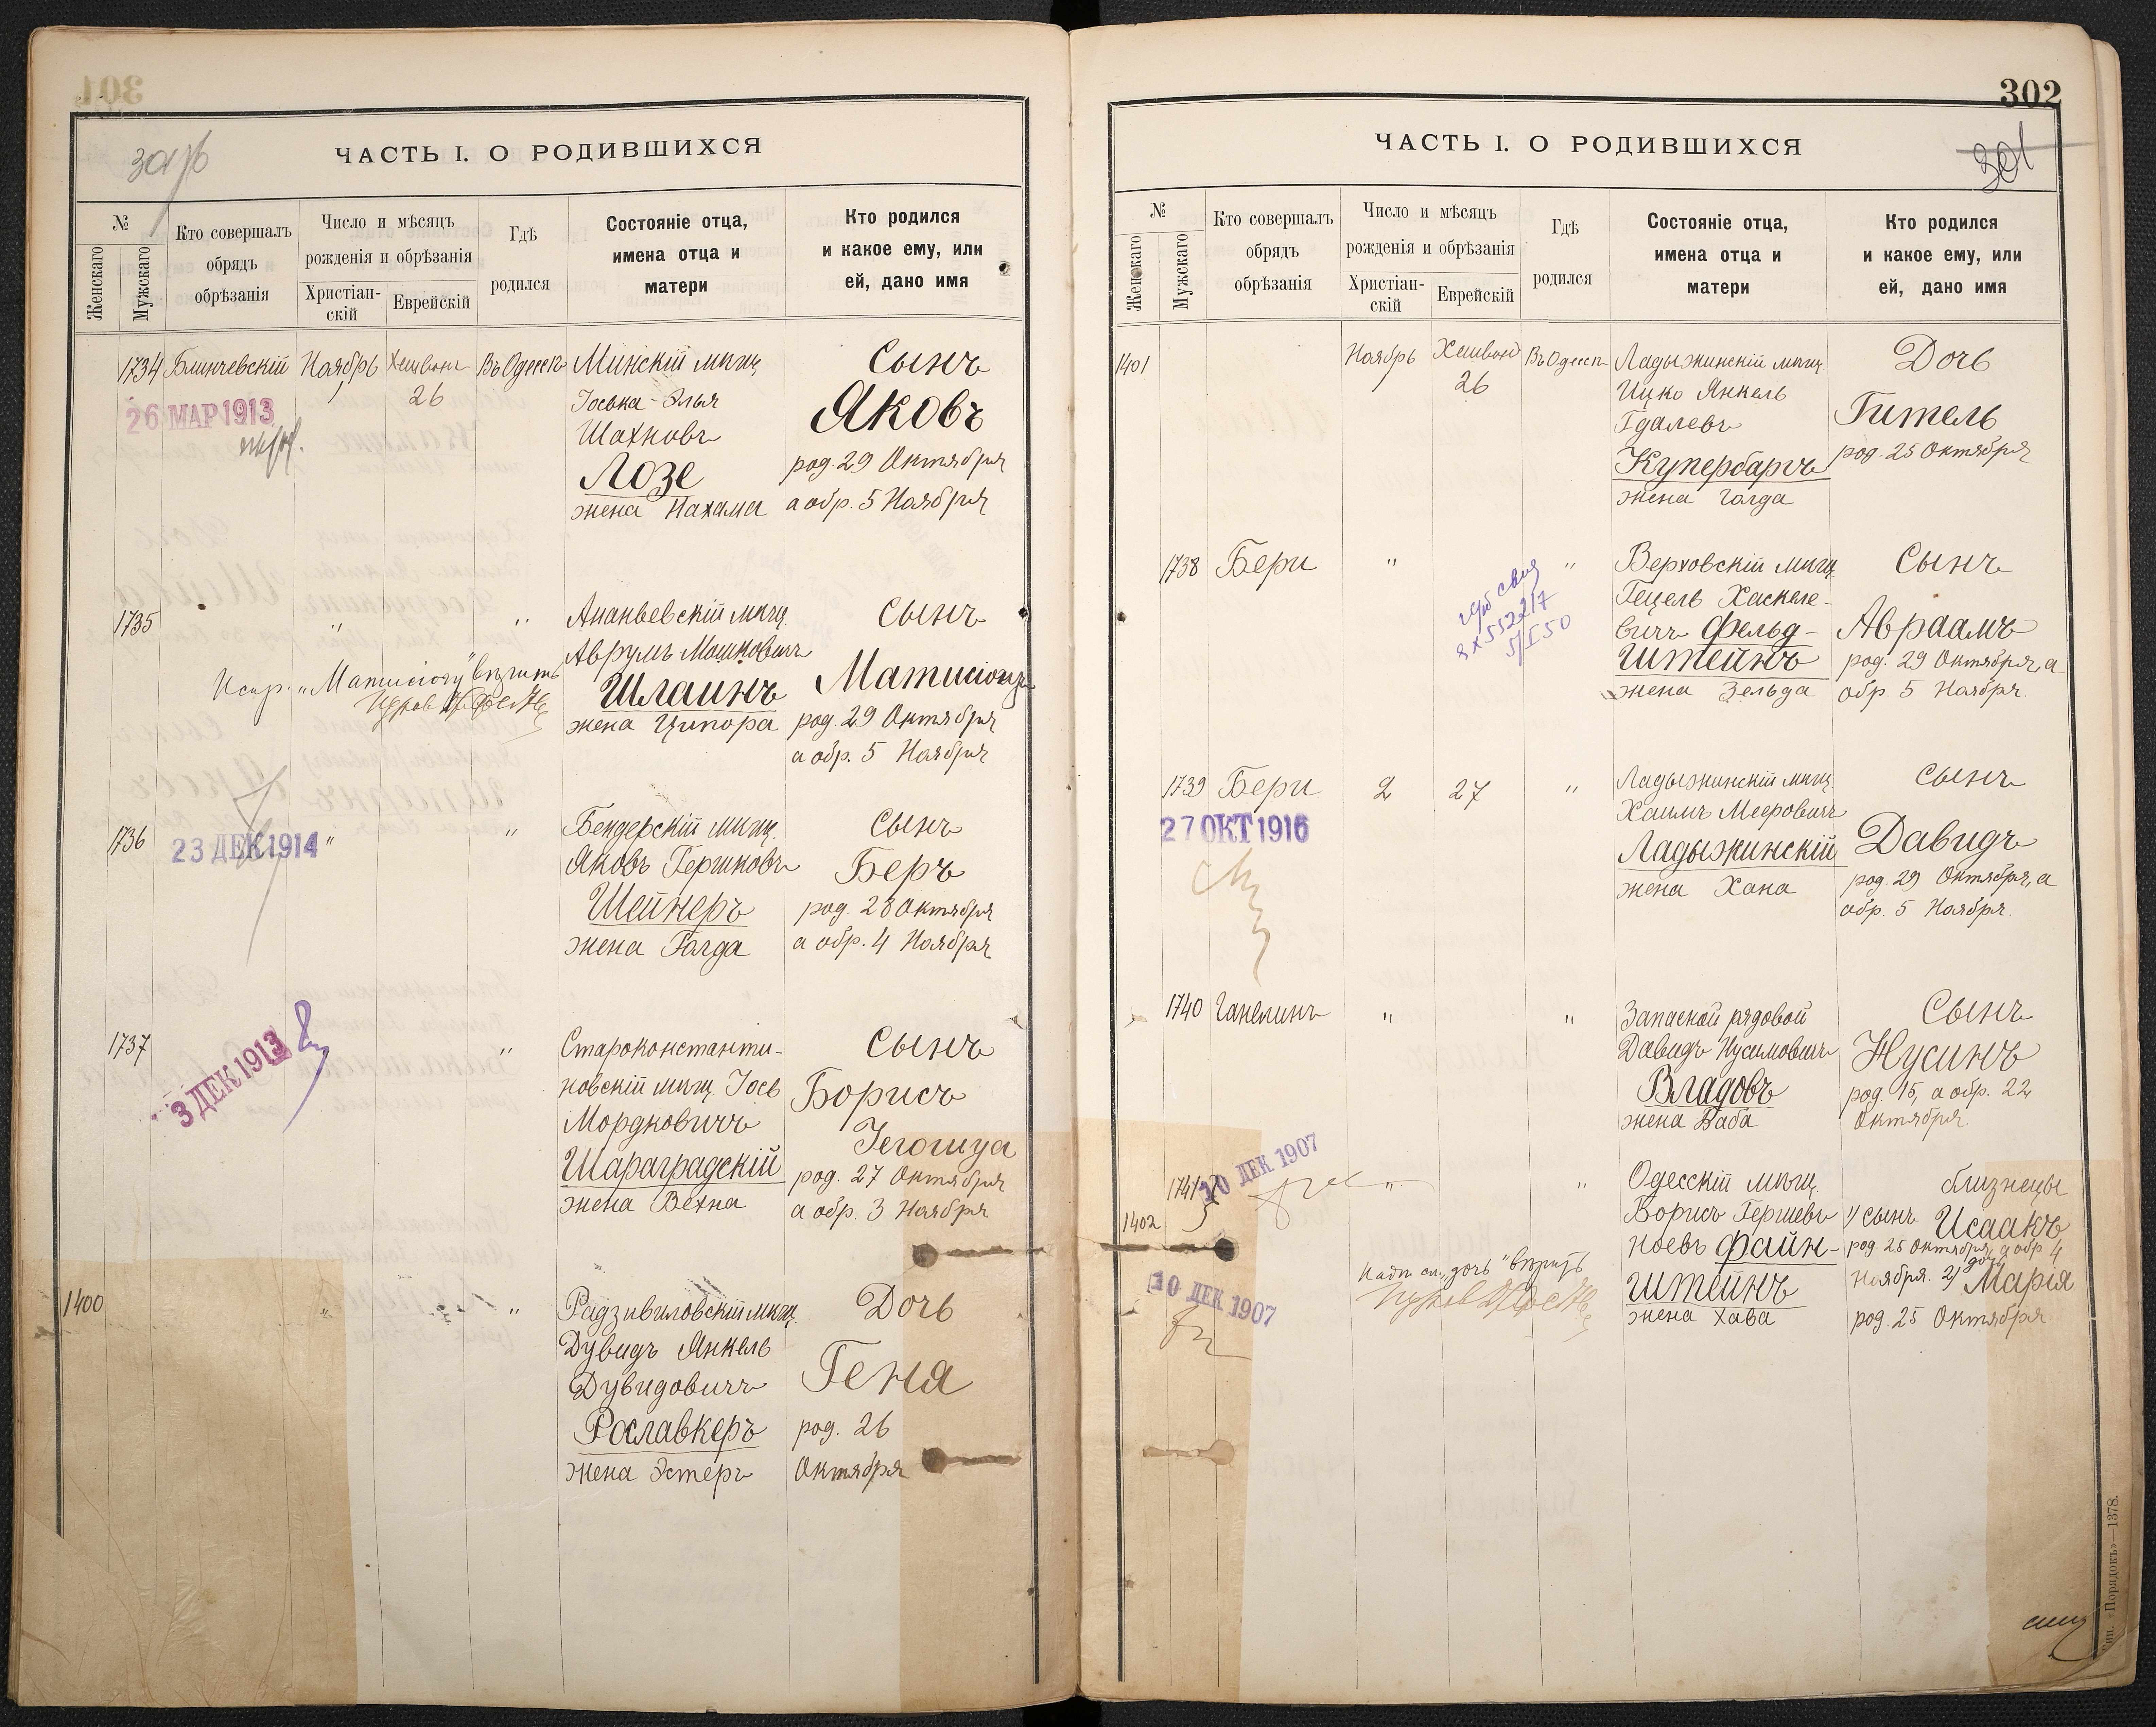 301
ЧАСТЬ I. О РОДИВШИХСЯ
№
Женскаго
Мужскаго
Кто совершалъ
обрядъ
обрѣзанія
Число и мѣсяцъ
рожденія и обрѣзанія
Христіан-
скій
Еврейскій
Гдѣ
родился
Состояніе отца,
имена отца и
матери
Кто родился
и какое ему, или
ей, дано имя
1734 Блинчевскій Ноябрь 1 Хешванъ 26 Въ Одессѣ
26 МАР 1913
Минскій мѣщ.
Іоська-Элья
Шахновъ
Лозе
жена Нахама
Сынъ
Яковъ
род. 29 Октября
а обр. 5 Ноября
1735 " "
Испр. „Матисіогу" вѣрить
Ананьевскій мѣщ.
Аврумъ Мошковичъ
Шлаинъ
жена Ципора
Сынъ
Матисіогу
род. 29 Октября
а обр. 5 Ноября
1736 " "
23 ДЕК 1914
Бендерскій мѣщ.
Яковъ Гершковъ
Шейнеръ
жена Голда
Сынъ
Беръ
род. 28 Октября
а обр. 4 Ноября
1737 "
3 ДЕК 1913
Староконстанти-
новскій мѣщ. Іось
Мордковичъ
Шараградскій
жена Вехна
Сынъ
Борисъ
Іегошуа
род. 27 Октября
а обр. 3 Ноября
1400 " "
Радзивиловскій мѣщ.
Дувидъ Янкель
Дувидовичъ
Рославкеръ
жена Эстеръ
Дочь
Геня
род. 26
Октября
302
301
ЧАСТЬ I. О РОДИВШИХСЯ
№
Женскаго
Мужскаго
Кто совершалъ
обрядъ
обрѣзанія
Число и мѣсяцъ
рожденія и обрѣзанія
Христіан-
скій
Еврейскій
Гдѣ
родился
Состояніе отца,
имена отца и
матери
Кто родился
и какое ему, или
ей, дано имя
1401 Ноябрь Хешванъ 26 Въ Одессѣ
Ладыжинскій мѣщ.
Ицко Янкель
Гдалевъ
Купербарчъ
жена Голда
Дочь
Гитель
род. 25 Октября
1738 Бери " "
5/I 50
Верховскій мѣщ.
Гецель Хаскеле-
вичъ Фельд-
штейнъ
жена Зельда
Сынъ
Авраамъ
род. 29 Октября, а
обр. 5 Ноября.
1739 Бери 2 27 "
27 ОКТ 1916
Ладыжинскій мѣщ.
Хаимъ Мееровичъ
Ладыжинскій
жена Хана
Сынъ
Давидъ
род. 29 Октября, а
обр. 5 Ноября.
1740 Ганелинъ " "
Запасной рядовой
Давидъ Нусимовичъ
Владовъ
жена Баба
Сынъ
Нусинъ
род. 15, а обр. 22
Октября.
1741 " "
10 ДЕК 1907
1402
10 ДЕК 1907
Надп. сл. „дочь" вѣрить
Одесскій мѣщ.
Борисъ Гершевъ
Ноевъ Файн-
штейнъ
жена Хава
близнецы
1/ сынъ Исаакъ
род. 25 Октября, а обр. 4
Ноября. 2/ дочь Марія
род. 25 Октября
Тип. «Порядокъ»—1378.